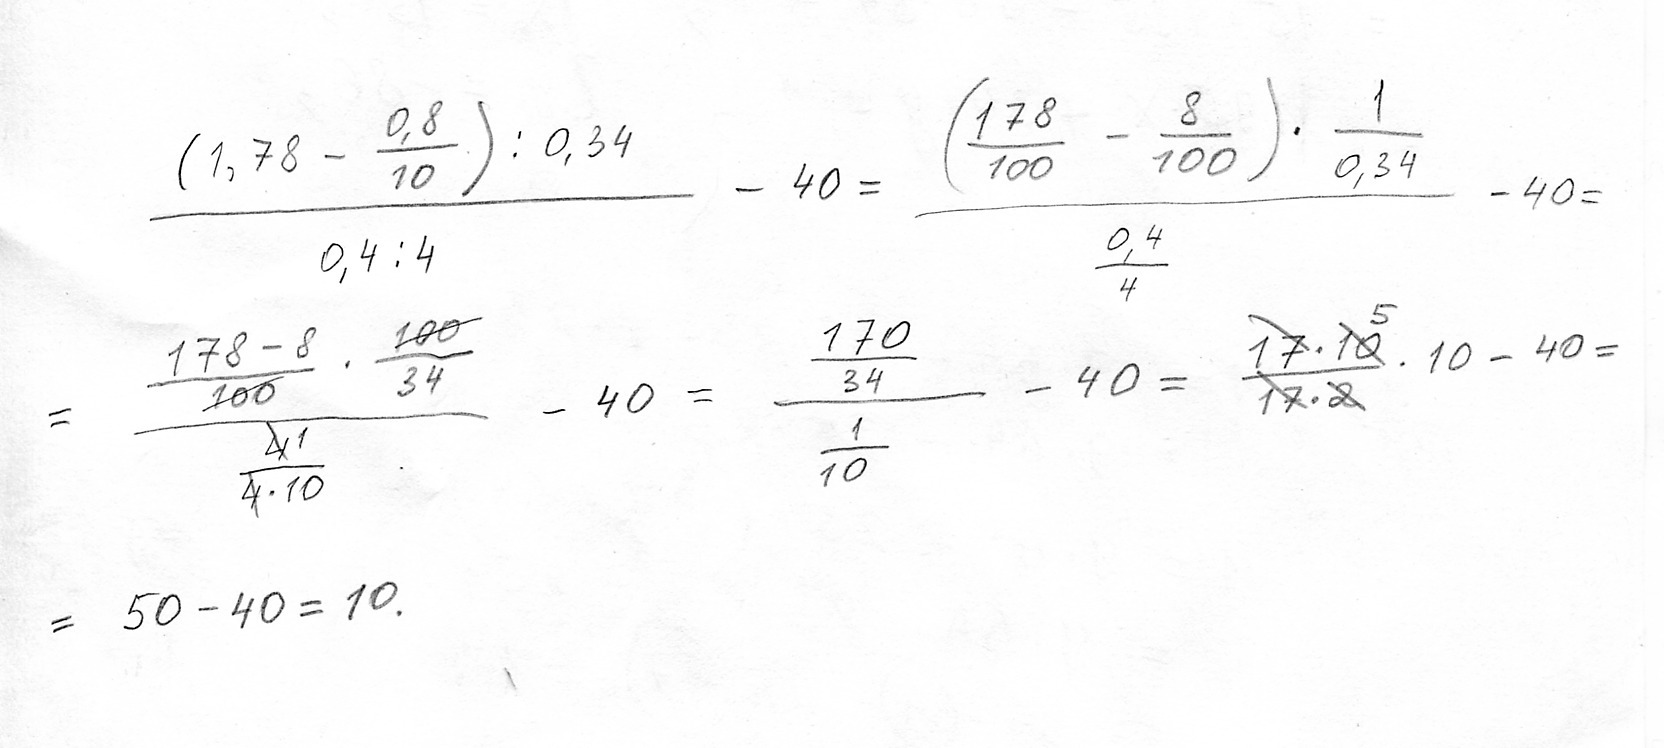 (1,78 - 0,8/10) : 0,34 / 0,4 : 4 - 40 = (178/100 - 8/100) · 1/0,34 / 0,4/4 - 40 =
= 178 - 8/100 · 100/34 / 4 1/4 · 10 - 40 = 170/34 / 1/10 - 40 = 17 · 10 5/17 · 2 · 10 - 40 =
= 50 - 40 = 10.